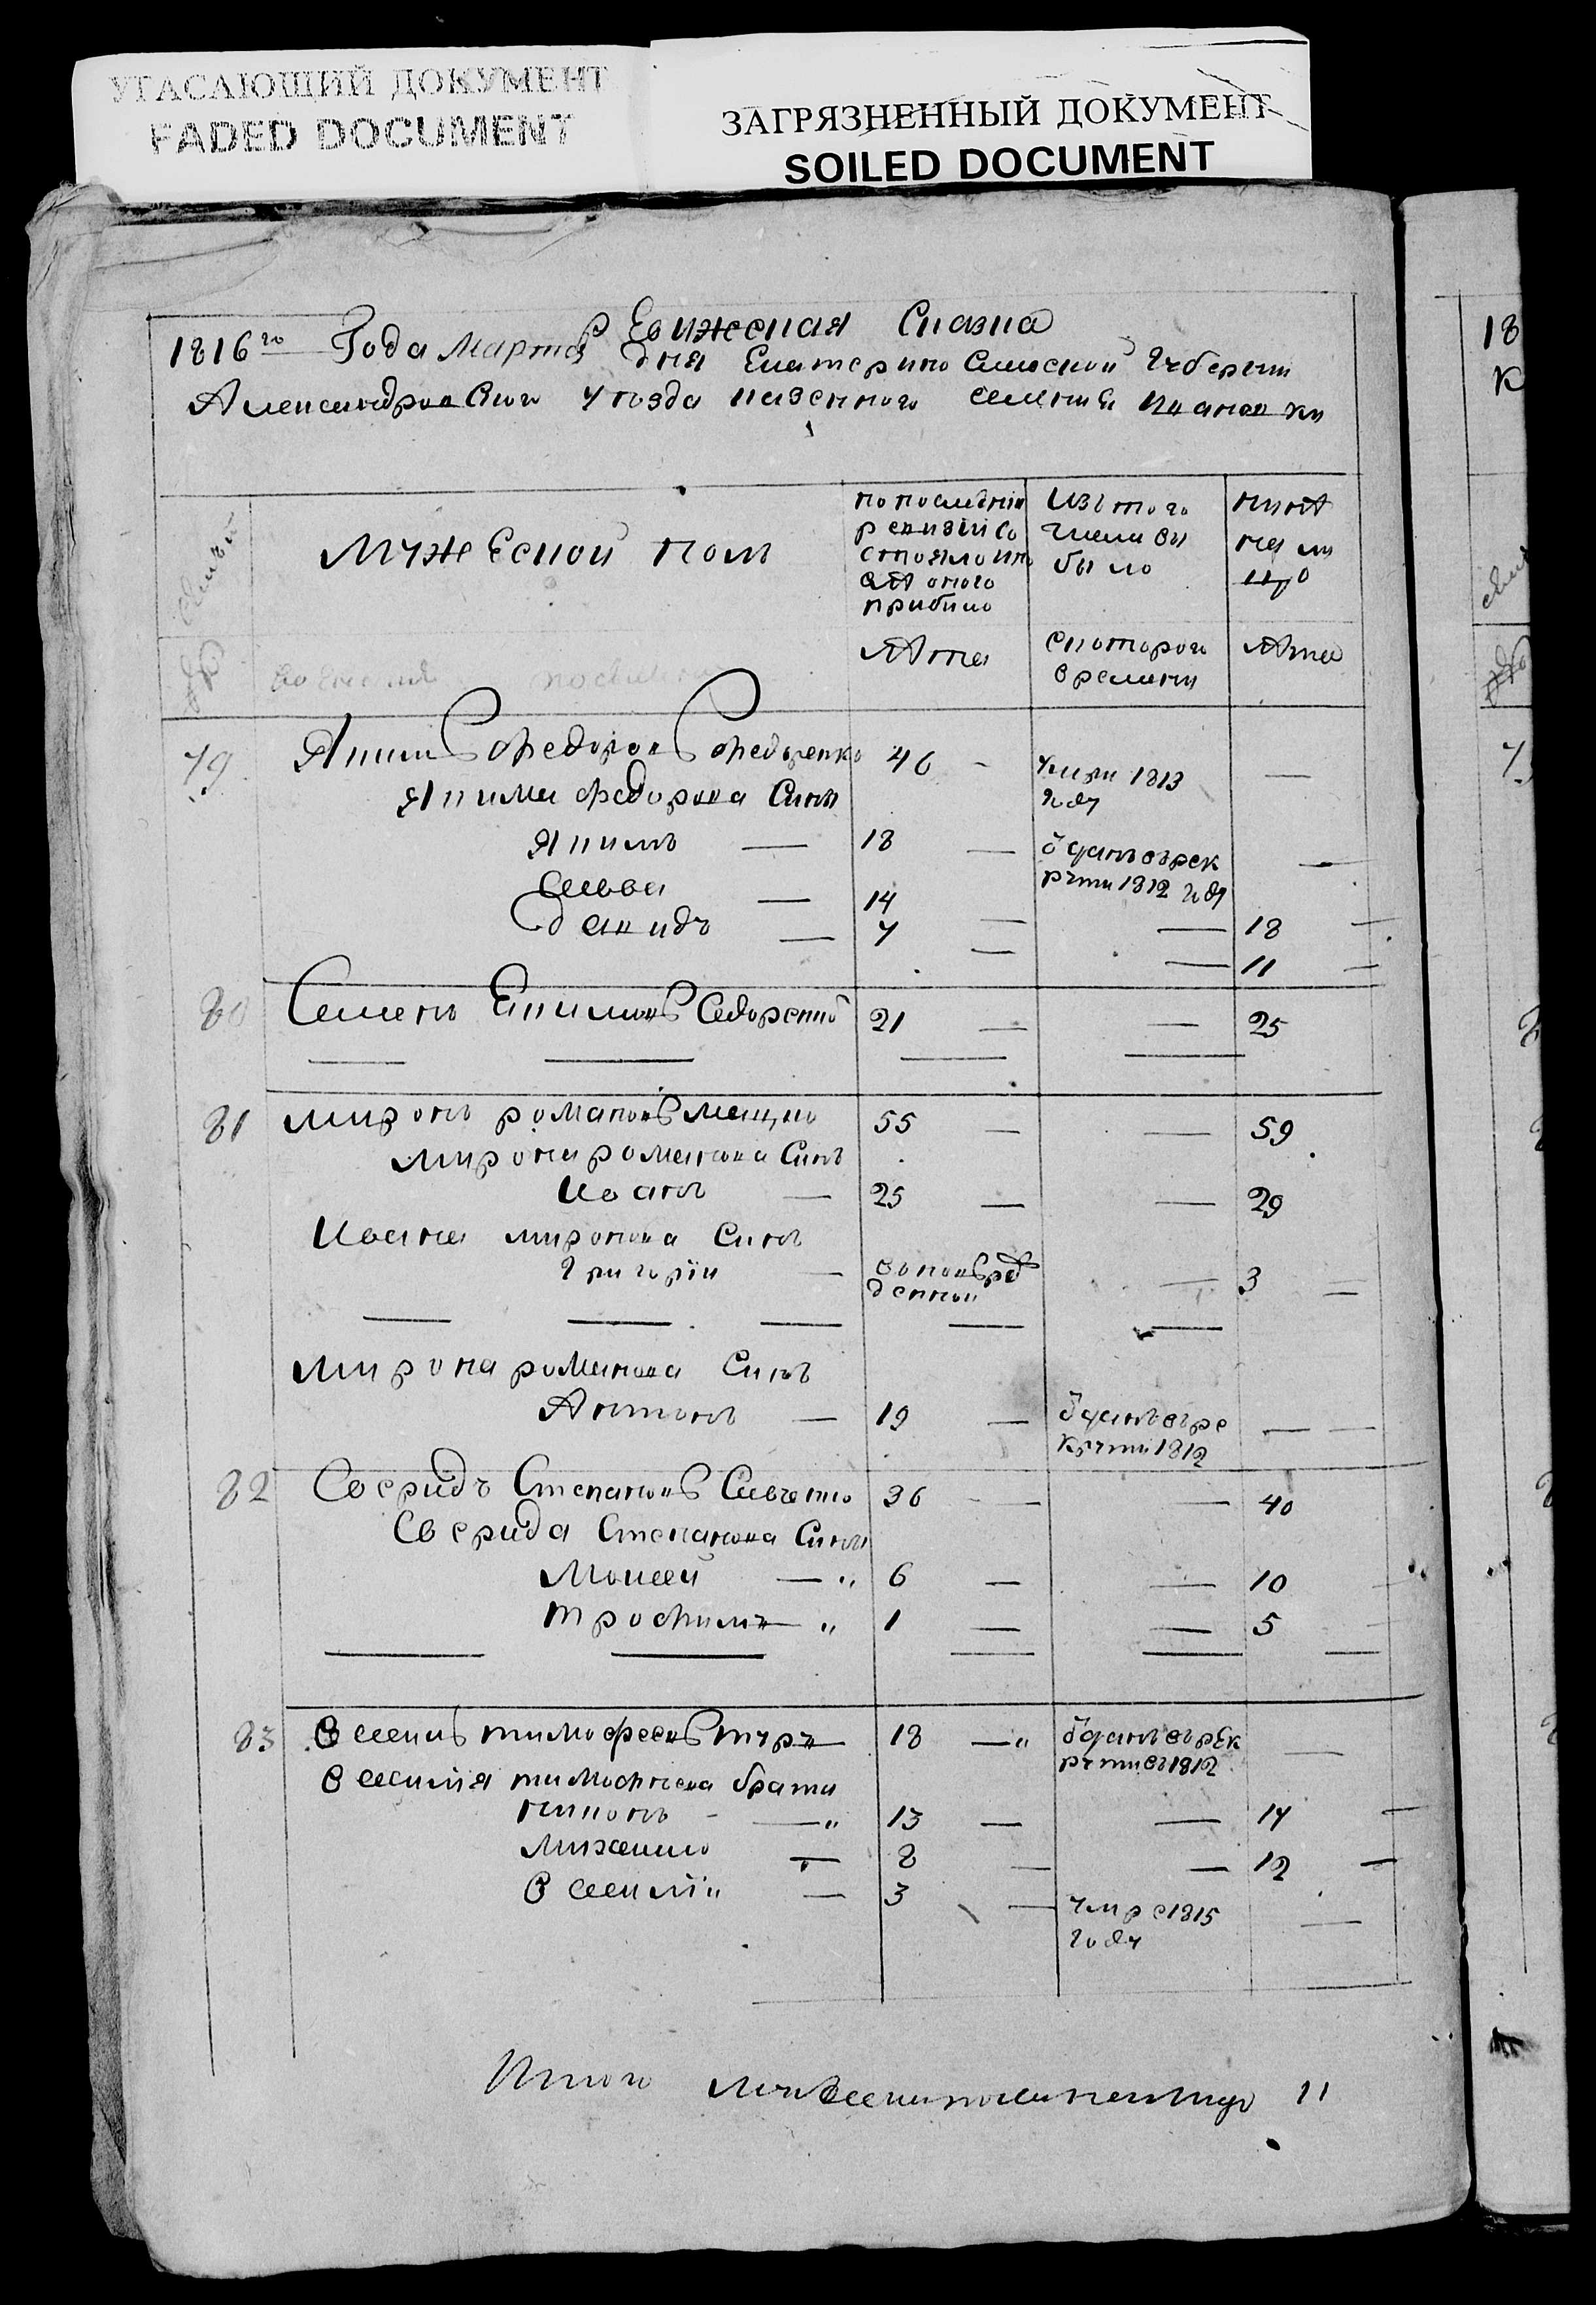 УГАСАЮЩИЙ ДОКУМЕНТ
FADED DOCUMENT
ЗАГРЯЗНЕННЫЙ ДОКУМЕНТ
SOILED DOCUMENT
Ревижеская Сказка
1816го Года Марта дня Екатеринославской Губернии
Александровского уезда казенного селения
Мужеской полъ
по последней ревизии состояло и после оного прибыло
Изъ того числа выбыло
ныне на лицо
Лета
с которого времени
Лета
79 Якимъ Федоровъ Федоренко 46 — умре 1813 году —
Якима Федорова Сыны
Якимъ — 18 — отданъ въ рекруты 1812 году —
Савва — 14 — — 18 —
Давидъ — 7 — — 11 —
80 Семенъ Екимовъ Федоренко 21 — — 25
81 миронъ романовъ 55 — — 59
мирона романова Сынъ
Иванъ — 25 — — 29
Ивана миронова Сынъ
Григорий — вновь рожденной — 3 —
мирона романова Сынъ
Антонъ — 19 — отданъ въ рекруты 1812 — —
82 Свиридъ Степановъ Савченко 36 — — 40
Свирида Степанова Сыны
Моисей — 6 — — 10
трофимъ — 1 — — 5
83 Василь тимофеевъ туръ 18 — отданъ въ рекруты въ 1812 —
Василия тимофеева братья
никонъ — 13 — — 17 —
михайло — 8 — — 12 —
Василий — 3 — умре 1815 году —
Итого мужеска пола на лицо 11
18